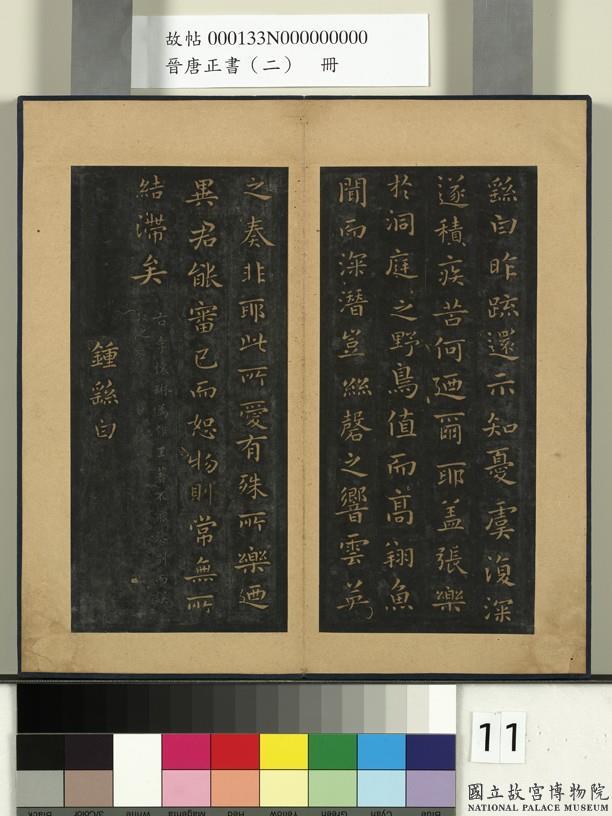 故帖 000133N000000000
晉唐正書（二）　冊
繇白昨疏還示知憂虞復深
遂積疾苦何迺爾耶蓋張樂
於洞庭之野鳥值而高翔魚
聞而深潛豈絲磬之響雲英
之奏非耶此所愛有殊所樂迺
異君能審己而恕物則常無所
結滯矣
鍾繇白
11
國立故宮博物院
NATIONAL PALACE MUSEUM
Black
3/Color
White
Magenta
Red
Yellow
Green
Cyan
Blue